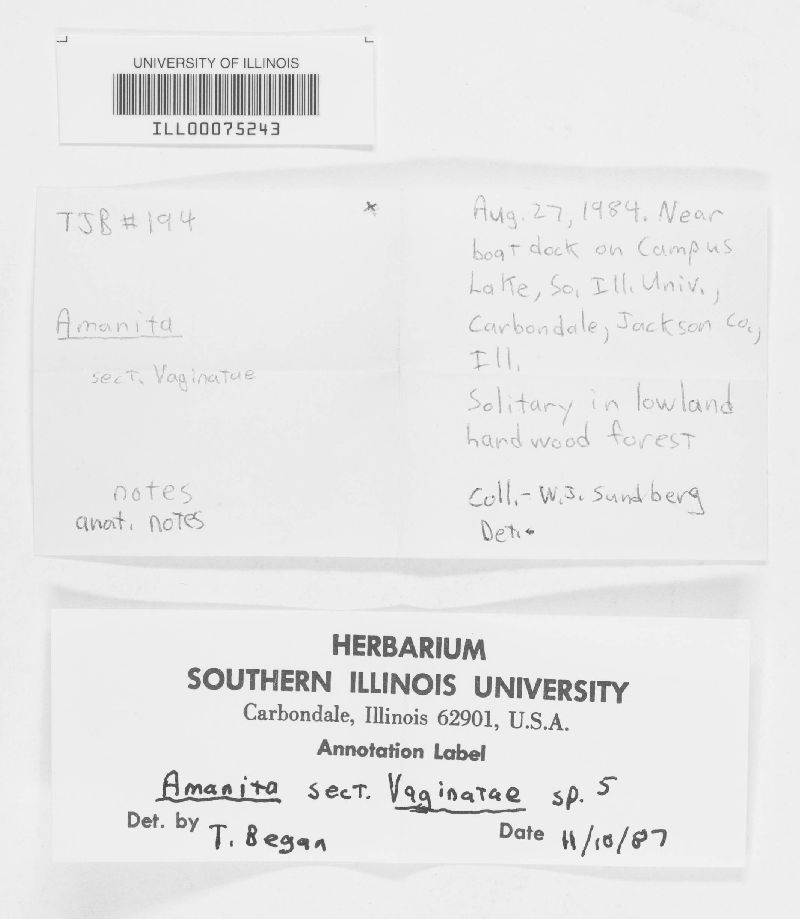 UNIVERSITY OF ILLINOIS
ILL00075243
TJB #194
Amanita
sect. Vaginatae
notes
anat. notes
Aug. 27, 1984. Near
boat dock on Campus
Lake, So. Ill. Univ.,
Carbondale, Jackson Co.,
Ill.
Solitary in lowland
hardwood forest
Coll.- W.J. Sundberg
Det.-
HERBARIUM
SOUTHERN ILLINOIS UNIVERSITY
Carbondale, Illinois 62901, U.S.A.
Annotation Label
Amanita sect. Vaginatae sp. 5
Det. by T. Began Date 11/10/87